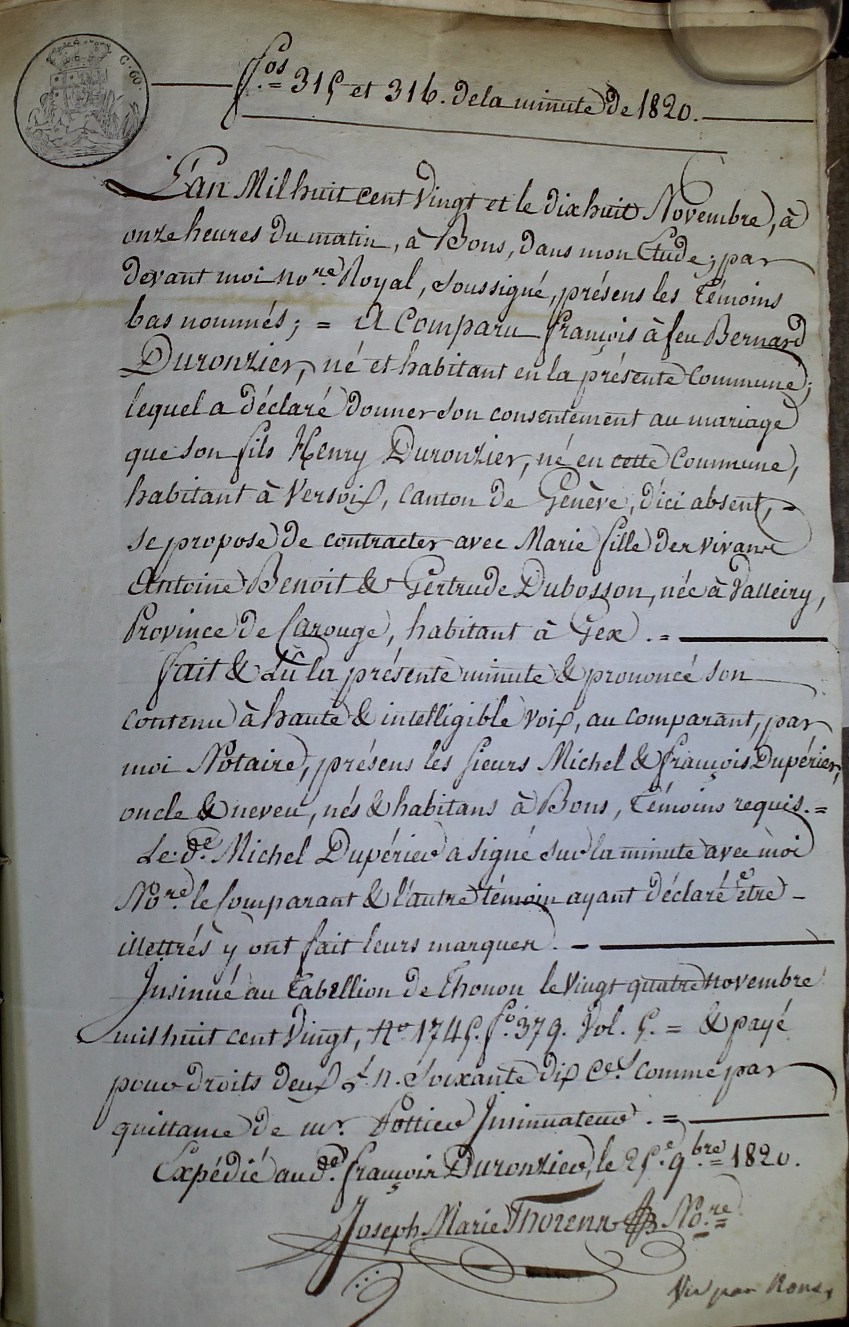 C. 60.
f.os = 315 et 316. de la minute de 1820.
L'an Mil huit cent Vingt et le dix huit Novembre, à
onze heures du matin, à Bons, dans mon Etude; par
devant moi no.re Royal, soussigné, présens les Témoins
bas nommés; = A Comparu françois à feu Bernard
Duronzier, né et habitant en la présente Commune;
lequel a déclaré donner son consentement au mariage
que son fils Henry Duronzier, né en cette Commune,
habitant à Versoix, Canton de Genève, d'ici absent, =
se propose de contracter avec Marie fille des vivans
Antoine Benoit & Gertrude Dubosson, née à Valleiry,
Province de Carouge, habitant à Gex. =
fait & Lû la présente minute & prononcé son
contenu à haute & intelligible voix, au comparant, par
moi Notaire, présens les sieurs Michel & françois Dupérier,
oncle & neveu, nés & habitans à Bons, Témoins requis. =
Le d.t Michel Dupérier a signé sur la minute avec moi
No.re le Comparant & l'autre témoin ayant déclaré être -
illettrés y ont fait leurs marques. -
Insinué au Tabellion de Thonon le Vingt quatre novembre
mil huit cent Vingt, N.o 1745. f.o 379. Vol. 5. = & payé
pour droits deux £ n. soixante dix c.es comme par
quittance de m.r Pottier Insinuateur. =
Expédié au d.t françois Duronzier, le 25.e 9.bre = 1820.
Joseph Marie Thorens No.re =
Vu par Nous,